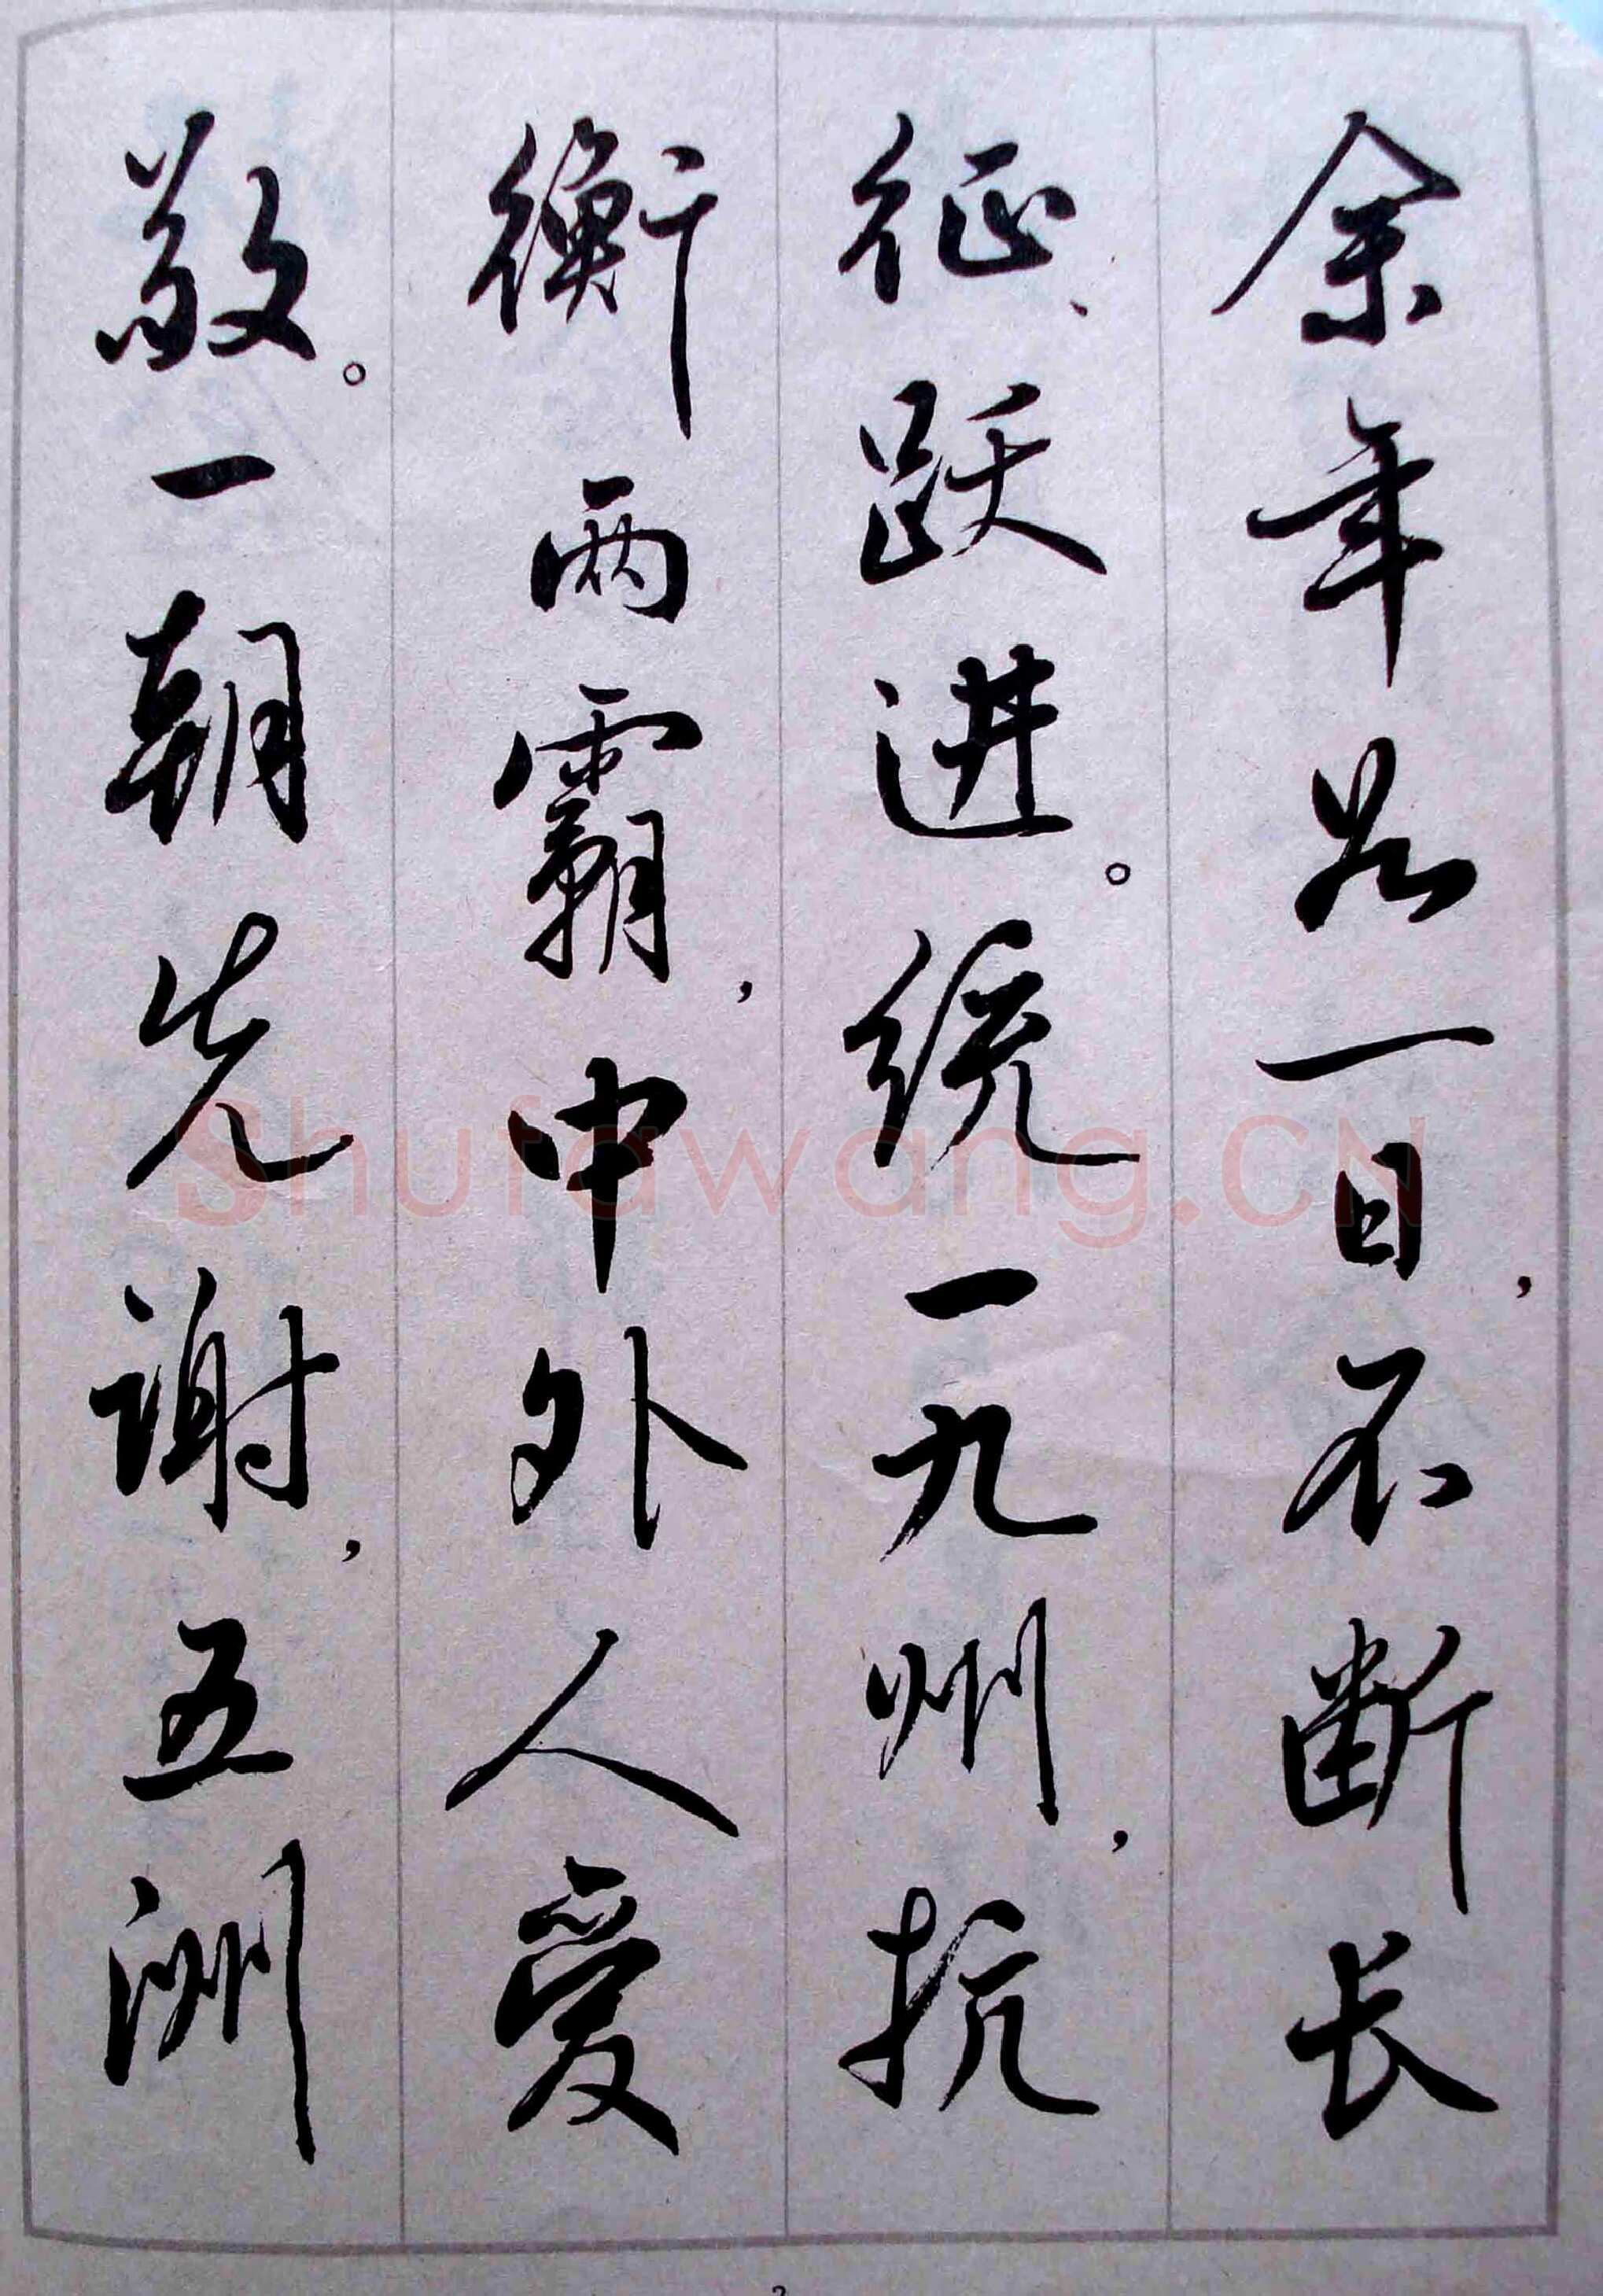 余年如一日，不断长
征、跃进。统一九州，抗
衡两霸，中外人爱
敬。一朝先谢，五洲
Shufawang.CN